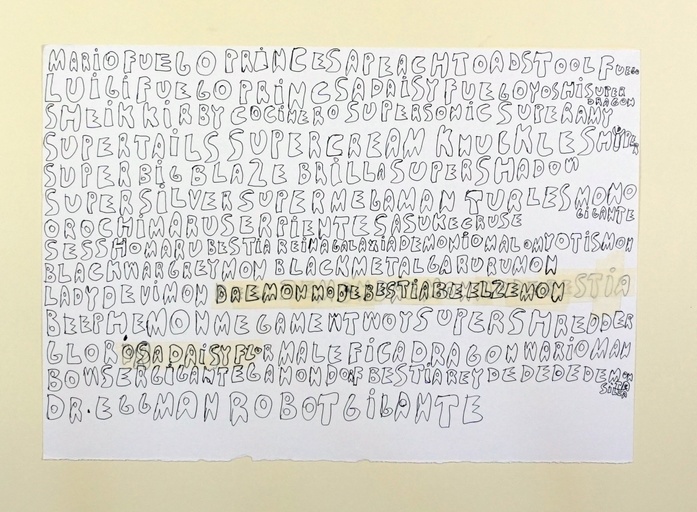 MARIO FUEGO PRINCESA PEACH TOADSTOOL FUEGO
LUIGI FUEGO PRINCSA DAISY FUEGO YOSHI SUPER DRAGON
SHEIK KIRBY COCINERO SUPERSONIC SUPERAMY
SUPERTAILS SUPERCREAM KNUCKLES HYPER
SUPER BIG BLAZE BRILLA SUPERSHADOW
SUPERSILVER SUPERMEGAMAN TURLES MONO GIGANTE
OROCHIMARU SERPIENTE SASUKE CRUSE
SESSHOMARU BESTIA REINA GALAXIA DEMONIO MALOMYOTISMON
BLACKWARGREYMON BLACKMETALGARURUMON
LADYDEVIMON DAEMON MODE BESTIA BEELZEMON STIA
BEEPHEMON MEGAMEWTWOY SUPERSHREDDER
GLOROSA DAISY FLOR MALEFICA DRAGON WARIOMAN
BOWSER GIGANTE GANONDORF BESTIA REY DEDEDE DEMON
DR. EGGMAN ROBOT GIGANTE